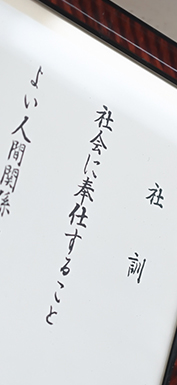 社訓
社会に奉仕すること
よい人間関係